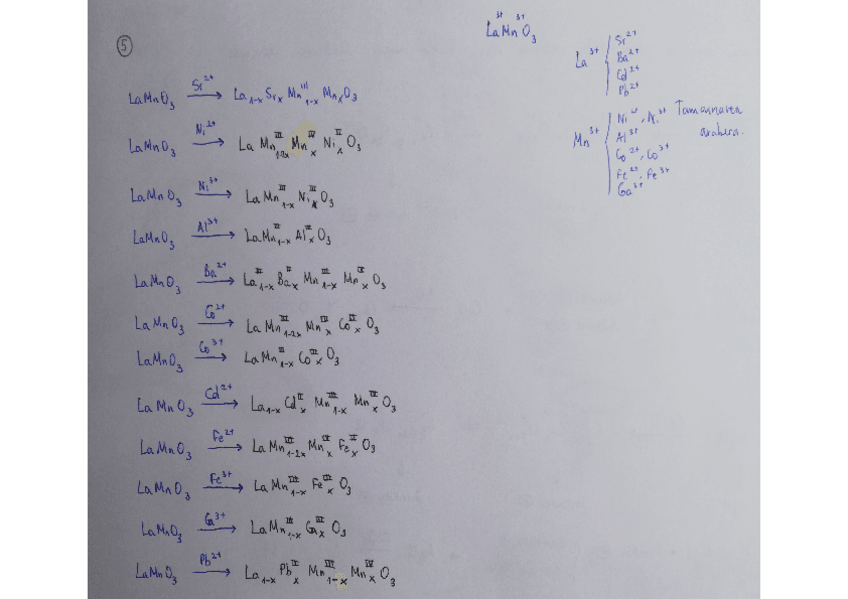 5
La³⁺Mn³⁺O₃
La³⁺ { Sr²⁺
Ba²⁺
Cd²⁺
Pb²⁺
Mn³⁺ { Ni²⁺, Ni³⁺
Al³⁺
Co²⁺, Co³⁺
Fe²⁺, Fe³⁺
Ga³⁺
Tamainaren
arabera.
LaMnO₃ —Sr²⁺→ La₁₋ₓ Srₓ Mn^III₁₋ₓ MnₓO₃
LaMnO₃ —Ni²⁺→ La Mn^III₁₋₂ₓ Mn^IVₓ Ni^IIₓ O₃
LaMnO₃ —Ni³⁺→ La Mn^III₁₋ₓ Ni^IIIₓ O₃
LaMnO₃ —Al³⁺→ LaMn^III₁₋ₓ Al^IIIₓ O₃
LaMnO₃ —Ba²⁺→ La^III₁₋ₓ Ba^IIₓ Mn^III₁₋ₓ Mn^IVₓ O₃
LaMnO₃ —Co²⁺→ La Mn^III₁₋₂ₓ Mn^IVₓ Co^IIₓ O₃
LaMnO₃ —Co³⁺→ La Mn^III₁₋ₓ Co^IIIₓ O₃
LaMnO₃ —Cd²⁺→ La₁₋ₓ Cd^IIₓ Mn^III₁₋ₓ Mn^IVₓ O₃
LaMnO₃ —Fe²⁺→ La Mn^III₁₋₂ₓ Mn^IVₓ Fe^IIₓ O₃
LaMnO₃ —Fe³⁺→ La Mn^III₁₋ₓ Fe^IIIₓ O₃
LaMnO₃ —Ga³⁺→ La Mn^III₁₋ₓ Ga^IIIₓ O₃
LaMnO₃ —Pb²⁺→ La₁₋ₓ Pb^IIₓ Mn^III₁₋ₓ Mn^IVₓ O₃